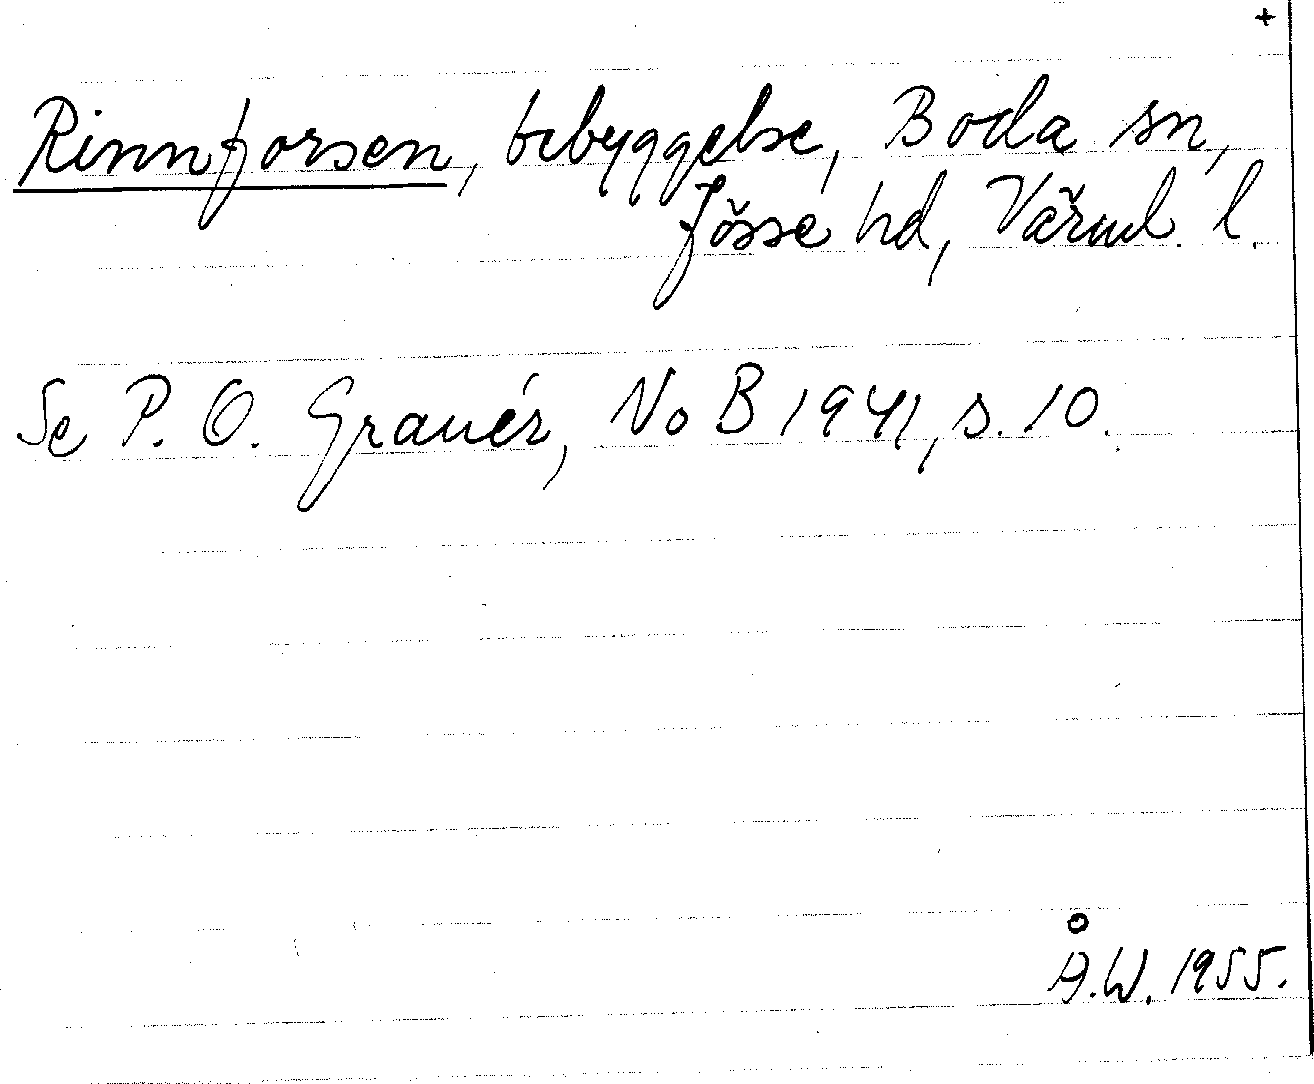 +
Rinnforsen, bebyggelse, Boda sn,
Jösse hd, Värml. l.
Se P. O. Granér, NoB 1941, s. 10.
Å.W. 1955.